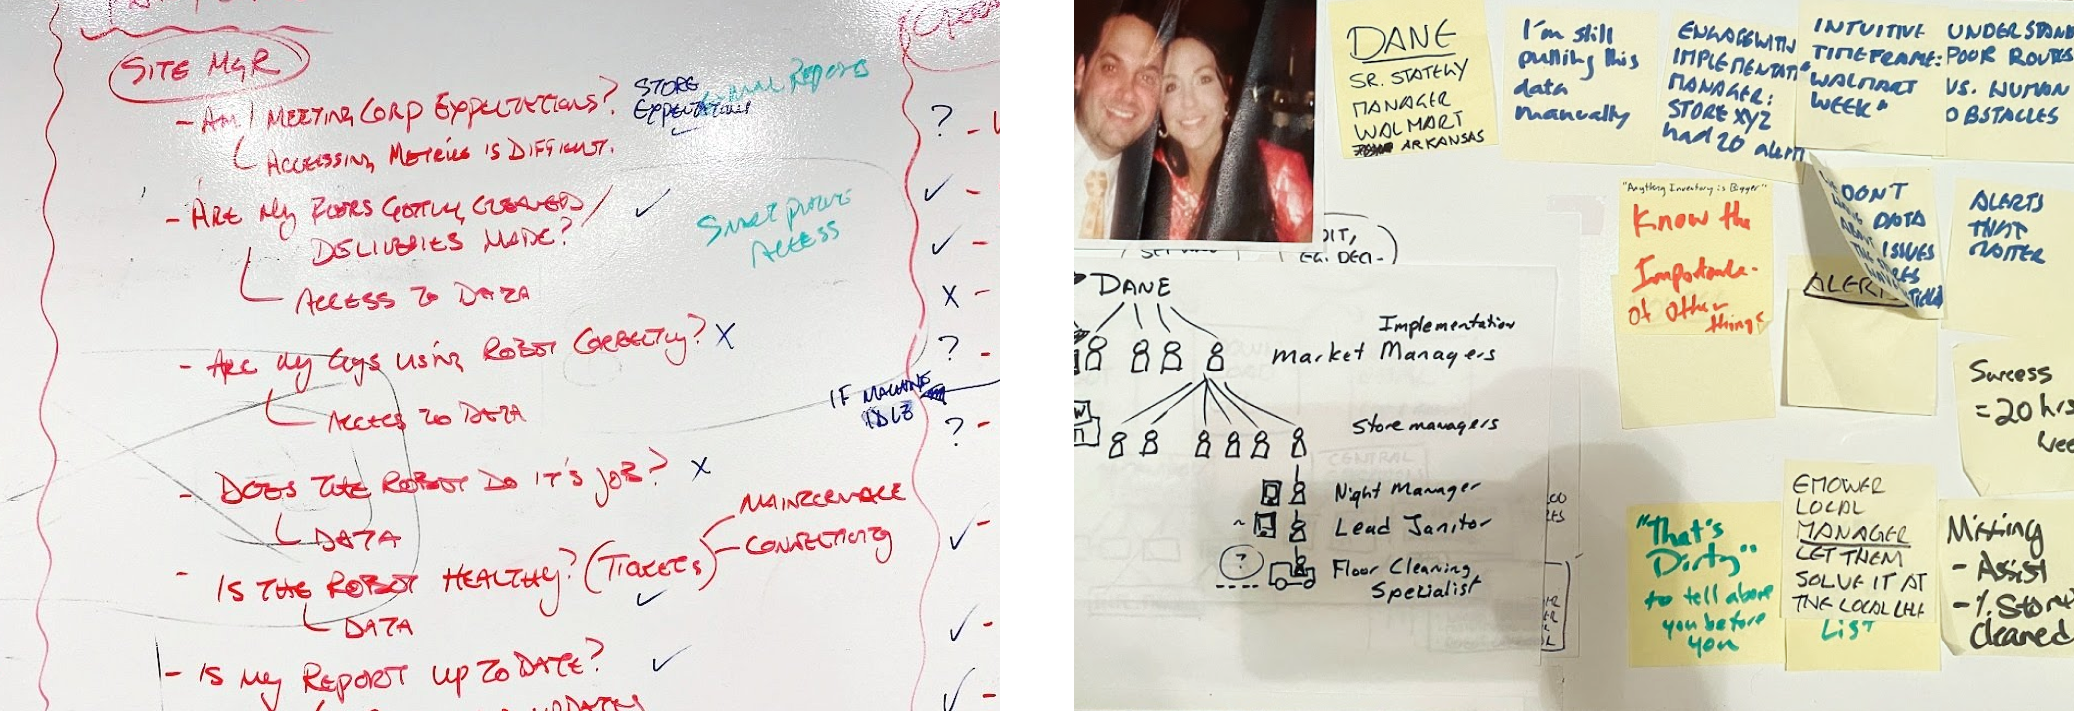 SITE MGR
- AM I MEETING CORP EXPECTATIONS?
STORE
EXPECTATIONS
REPORTS
ACCESSING METRICS IS DIFFICULT.
- ARE MY FLOORS GETTING CLEANED /
DELIVERIES MADE?
ACCESS TO DATA
SMART PHONE
ACCESS
- ARE MY GUYS USING ROBOT CORRECTLY? X
ACCESS TO DATA
IF MACHINE
IDLE
- DOES THE ROBOT DO IT'S JOB? X
DATA
- IS THE ROBOT HEALTHY? (TICKETS)
MAINTENANCE
CONNECTIVITY
DATA
- IS MY REPORT UP TO DATE?
UPDATES
?
X
?
?
DANE
SR. STATEGY
MANAGER
WALMART
ARKANSAS
I'm still
pulling this
data
manually
ENGAGE WITH
IMPLEMENTATI
MANAGER:
STORE XYZ
had 20 alert
INTUITIVE
TIMEFRAME:
"WALMART
WEEK"
UNDERSTAND
POOR ROUTES
VS. HUMAN
OBSTACLES
"Anything Inventory is Bigger"
Know the
Importance
of other
things
DON'T
DATA
ISSUES
ALERTS
THAT
MATTER
ALERT
DIT,
EG. DECI-
DANE
Implementation
Market Managers
Store managers
Night Manager
Lead Janitor
?
Floor Cleaning
Specialist
Success
= 20 hrs
week
"That's
Dirty"
to tell above
you before
you
EMOWER
LOCAL
MANAGER
LET THEM
SOLVE IT AT
THE LOCAL LEVEL
LIST
Missing
- Assist
- % Store
cleaned